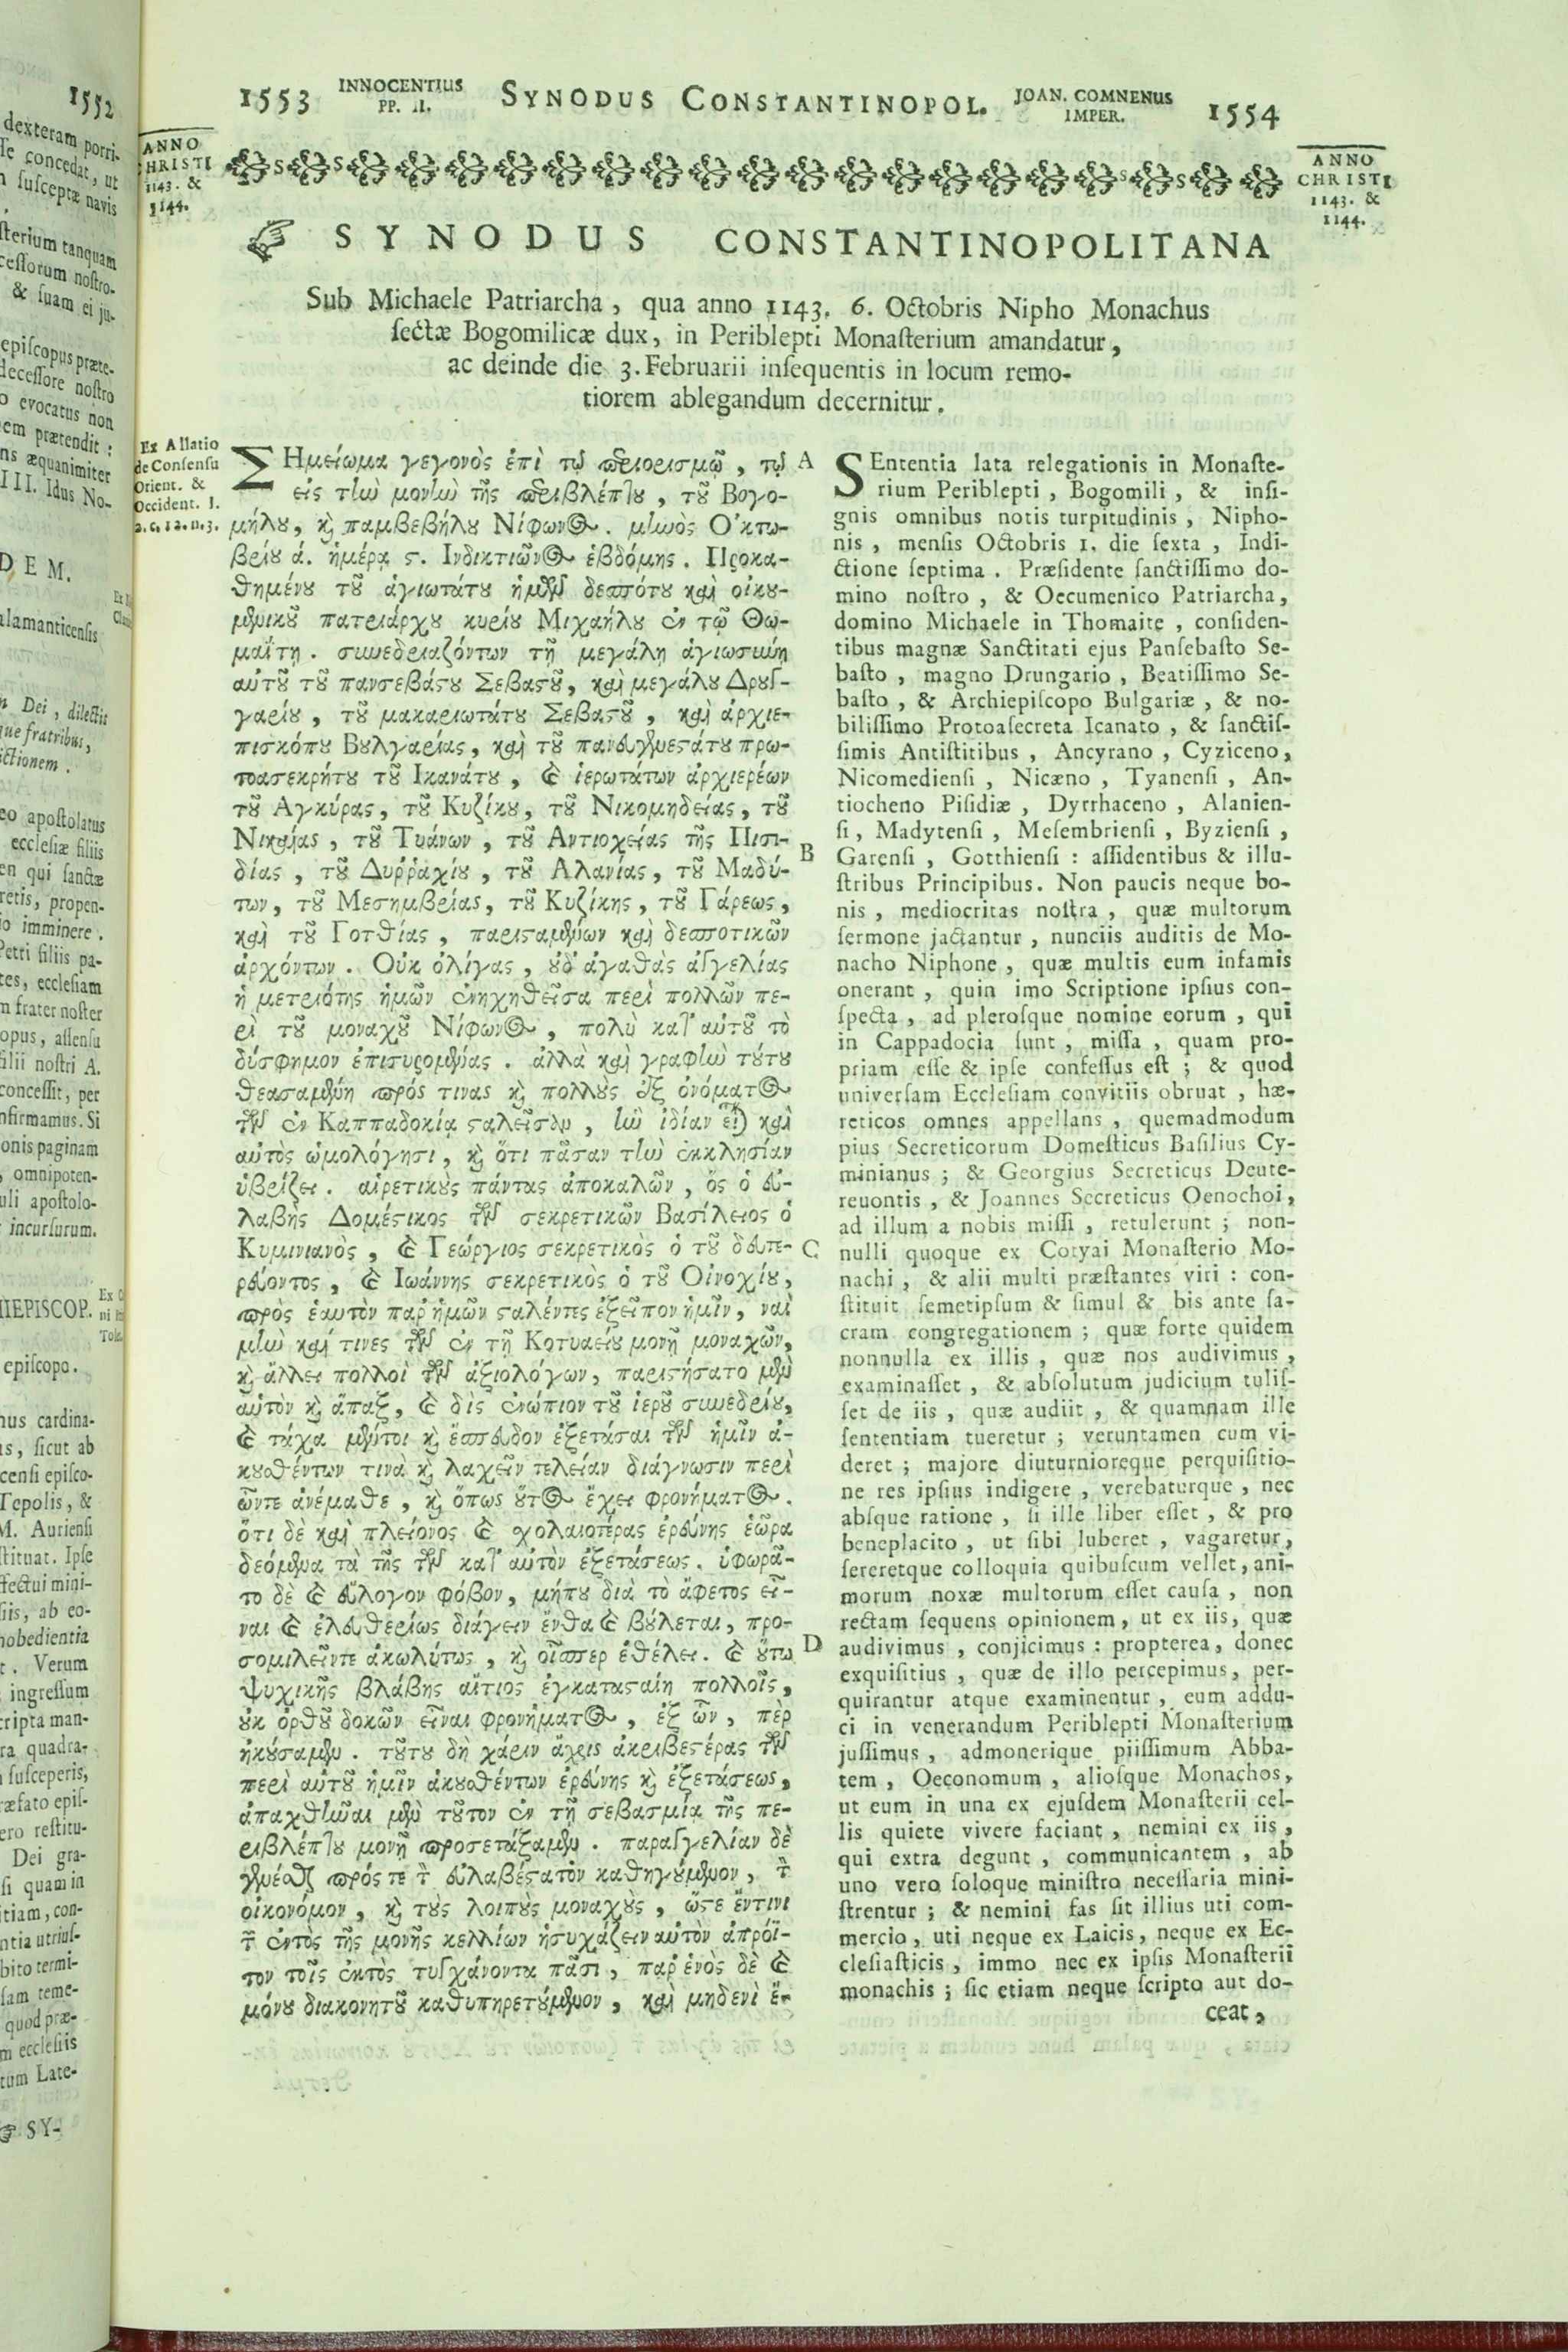 1552
dexteram porri-
se concedat, ut
susceptæ navis
sterium tanquam
cessorum nostro-
& suam ei ju-
episcopus præte-
decessore nostro
evocatus non
em prætendit:
ns æquanimiter
III. Idus No-
DEM.
alamanticensis
Dei, dilectis
que fratribus,
ctionem.
eo apostolatus
ecclesiæ filiis
en qui sanctæ
retis, propen-
io imminere.
Petri filiis pa-
tes, ecclesiam
n frater noster
opus, assensu
filii nostri A.
concessit, per
nfirmamus. Si
onis paginam
, omnipoten-
uli apostolo-
incursurum.
IIEPISCOP.
episcopo.
nus cardina-
is, sicut ab
censi episco-
Tepolis, &
M. Auriensi
stituat. Ipse
fectui mini-
siis, ab eo-
nobedientia
t. Verum
ingressum
cripta man-
ra quadra-
susceperis,
ræfato epis-
ero restitu-
Dei gra-
si quam in
itiam, con-
ntia utrius-
bito termi-
sam reme-
quod præ-
m ecclesiis
tum Late-
☞ SY-
1553 INNOCENTIUS PP. II. SYNODUS CONSTANTINOPOL. JOAN. COMNENUS IMPER. 1554
ANNO
CHRISTI
1143. &
1144.
ANNO
CHRISTI
1143. &
1144.
☞ SYNODUS CONSTANTINOPOLITANA
Sub Michaele Patriarcha, qua anno 1143. 6. Octobris Nipho Monachus
sectæ Bogomilicæ dux, in Periblepti Monasterium amandatur,
ac deinde die 3. Februarii insequentis in locum remo-
tiorem ablegandum decernitur.
Ex Allatio
de Consensu
Orient. &
Occident. l.
2. c. 12. n. 3.
ΣΗμείωμα γεγονὸς ἐπὶ τῷ περιορισμῷ, τῷ
εἰς τὴν μονὴν τῆς περιβλέπτου, τοῦ Βογο-
μήλου, καὶ παμβεβήλου Νίφωνος. μηνὸς Ὀκτω-
βρίου ά. ἡμέρᾳ ϛ. Ἰνδικτιῶνος ἑβδόμης. Προκα-
θημένου τοῦ ἁγιωτάτου ἡμῶν δεσπότου καὶ οἰκου-
μενικοῦ πατριάρχου κυρίου Μιχαήλου ἐν τῷ Θω-
μαΐτῃ. συνεδριαζόντων τῇ μεγάλῃ ἁγιωσύνῃ
αὐτοῦ τοῦ πανσεβάστου Σεβαστοῦ, καὶ μεγάλου Δρουγ-
γαρίου, τοῦ μακαριωτάτου Σεβαστοῦ, καὶ ἀρχιε-
πισκόπου Βουλγαρίας, καὶ τοῦ πανευγενεστάτου πρω-
τοασεκρήτου τοῦ Ἱκανάτου, καὶ ἱερωτάτων ἀρχιερέων
τοῦ Αγκύρας, τοῦ Κυζίκου, τοῦ Νικομηδείας, τοῦ
Νικαίας, τοῦ Τυάνων, τοῦ Αντιοχείας τῆς Πισι-
δίας, τοῦ Δυῤῥαχίου, τοῦ Αλανίας, τοῦ Μαδύ-
των, τοῦ Μεσημβρίας, τοῦ Κυζίκης, τοῦ Γάρεως,
καὶ τοῦ Γοτθίας, παρισταμένων καὶ δεσποτικῶν
ἀρχόντων. Οὐκ ὀλίγας, οὐδ' ἀγαθὰς ἀγγελίας
ἡ μετριότης ἡμῶν ἐνηχηθεῖσα περὶ πολλῶν πε-
ρὶ τοῦ μοναχοῦ Νίφωνος, πολὺ κατ' αὐτοῦ τὸ
δύσφημον ἐπισυρομένας. ἀλλὰ καὶ γραφὴν τούτου
θεασαμένη πρός τινας καὶ πολλοὺς ἐξ ὀνόματος
τῶν ἐν Καππαδοκίᾳ σταλεῖσαν, ἣν ἰδίαν εἶναι καὶ
αὐτὸς ὡμολόγησι, καὶ ὅτι πᾶσαν τὴν ἐκκλησίαν
ὑβρίζει. αἱρετικοὺς πάντας ἀποκαλῶν, ὅς ὁ εὐ-
λαβὴς Δομέστικος τῶν σεκρετικῶν Βασίλειος ὁ
Κυμινιανὸς, καὶ Γεώργιος σεκρετικὸς ὁ τοῦ δευτε-
ρεύοντος, καὶ Ἰωάννης σεκρετικὸς ὁ τοῦ Οἰνοχίου,
πρὸς ἑαυτὸν παρ' ἡμῶν σταλέντες ἐξεῖπον ἡμῖν, ναὶ
μὴν καί τινες τῶν ἐν τῇ Κοτυαείου μονῇ μοναχῶν,
καὶ ἄλλει πολλοὶ τῶν ἀξιολόγων, παριστήσατο μὲν
αὐτὸν καὶ ἅπαξ, καὶ δὶς ἐνώπιον τοῦ ἱεροῦ συνεδρίου,
καὶ τάχα μέντοι καὶ ἔσπευδον ἐξετάσαι τῶν ἡμῖν ἀ-
κουσθέντων τινὰ καὶ λαχεῖν τελείαν διάγνωσιν περὶ
ὧντε ἀνέμαθε, καὶ ὅπως οὗτος ἔχει φρονήματος.
ὅτι δὲ καὶ πλείονος καὶ σχολαιοτέρας ἐρεύνης ἑῶρα
δεόμενα τὰ τῆς τῶν κατ' αὐτὸν ἐξετάσεως. ὑφωρᾶ-
το δὲ καὶ εὔλογον φόβον, μήπου διὰ τὸ ἄφετος εἶ-
ναι καὶ ἐλευθερίως διάγειν ἔνθα καὶ βούλεται, προ-
σομιλεῖντε ἀκωλύτως, καὶ οἷσπερ ἐθέλει. καὶ οὕτω
ψυχικῆς βλάβης αἴτιος ἐγκατασταίη πολλοῖς,
οὐκ ὀρθοῦ δοκῶν εἶναι φρονήματος, ἐξ ὧν, πὲρ
ἠκούσαμεν. τούτου δὴ χάριν ἄχρις ἀκριβεστέρας τῶν
περὶ αὐτοῦ ἡμῖν ἀκουσθέντων ἐρεύνης καὶ ἐξετάσεως,
ἀπαχθῆναι μὲν τοῦτον ἐν τῇ σεβασμίᾳ τῆς πε-
ριβλέπτου μονῇ προσετάξαμεν. παραγγελίαν δὲ
γενέσθαι πρός τε τὸν εὐλαβέστατὸν καθηγούμενον, τὸν
οἰκονόμον, καὶ τοὺς λοιποὺς μοναχοὺς, ὥστε ἔντινι
τῶν ἐντὸς τῆς μονῆς κελλίων ἡσυχάζειν αὐτὸν ἀπρόϊ-
τον τοῖς ἐκτὸς τυγχάνοντα πᾶσι, παρ' ἑνὸς δὲ καὶ
μόνου διακονητοῦ καθυπηρετούμενον, καὶ μηδενὶ ἔ-
A
B
C
D
SEntentia lata relegationis in Monaste-
rium Periblepti, Bogomili, & insi-
gnis omnibus notis turpitudinis, Nipho-
nis, mensis Octobris 1. die sexta, Indi-
ctione septima. Præsidente sanctissimo do-
mino nostro, & Occumenico Patriarcha,
domino Michaele in Thomaite, considen-
tibus magnæ Sanctitati ejus Pansebasto Se-
basto, magno Drungario, Beatissimo Se-
basto, & Archiepiscopo Bulgariæ, & no-
bilissimo Protoasecreta Icanato, & sanctis-
simis Antistitibus, Ancyrano, Cyziceno,
Nicomediensi, Nicæno, Tyanensi, An-
tiocheno Pisidiæ, Dyrrhaceno, Alanien-
si, Madytensi, Mesembriensi, Byziensi,
Garensi, Gotthiensi: assidentibus & illu-
stribus Principibus. Non paucis neque bo-
nis, mediocritas nostra, quæ multorum
sermone jactantur, nunciis auditis de Mo-
nacho Niphone, quæ multis eum infamis
onerant, quin imo Scriptione ipsius con-
specta, ad plerosque nomine eorum, qui
in Cappadocia sunt, missa, quam pro-
priam esse & ipse confessus est; & quod
universam Ecclesiam convitiis obruat, hæ-
reticos omnes appellans, quemadmodum
pius Secreticorum Domesticus Basilius Cy-
minianus; & Georgius Secreticus Deute-
reuontis, & Joannes Secreticus Oenochoi,
ad illum a nobis missi, retulerunt; non-
nulli quoque ex Cotyai Monasterio Mo-
nachi, & alii multi præstantes viri: con-
stituit semetipsum & simul & bis ante sa-
cram congregationem; quæ forte quidem
nonnulla ex illis, quæ nos audivimus,
examinasset, & absolutum judicium tulis-
set de iis, quæ audiit, & quamnam ille
sententiam tueretur; veruntamen cum vi-
deret; majore diuturnioreque perquisitio-
ne res ipsius indigere, verebaturque, nec
absque ratione, si ille liber esset, & pro
beneplacito, ut sibi luberet, vagaretur,
sereretque colloquia quibuscum vellet, ani-
morum noxæ multorum esset causa, non
rectam sequens opinionem, ut ex iis, quæ
audivimus, conjicimus: propterea, donec
exquisitius, quæ de illo percepimus, per-
quirantur atque examinentur, eum addu-
ci in venerandum Periblepti Monasterium
jussimus, admonerique piissimum Abba-
tem, Oeconomum, aliosque Monachos,
ut eum in una ex ejusdem Monasterii cel-
lis quiete vivere faciant, nemini ex iis,
qui extra degunt, communicantem, ab
uno vero soloque ministro necessaria mini-
strentur; & nemini fas sit illius uti com-
mercio, uti neque ex Laicis, neque ex Ec-
clesiasticis, immo nec ex ipsis Monasterii
monachis; sic etiam neque scripto aut do-
ceat,